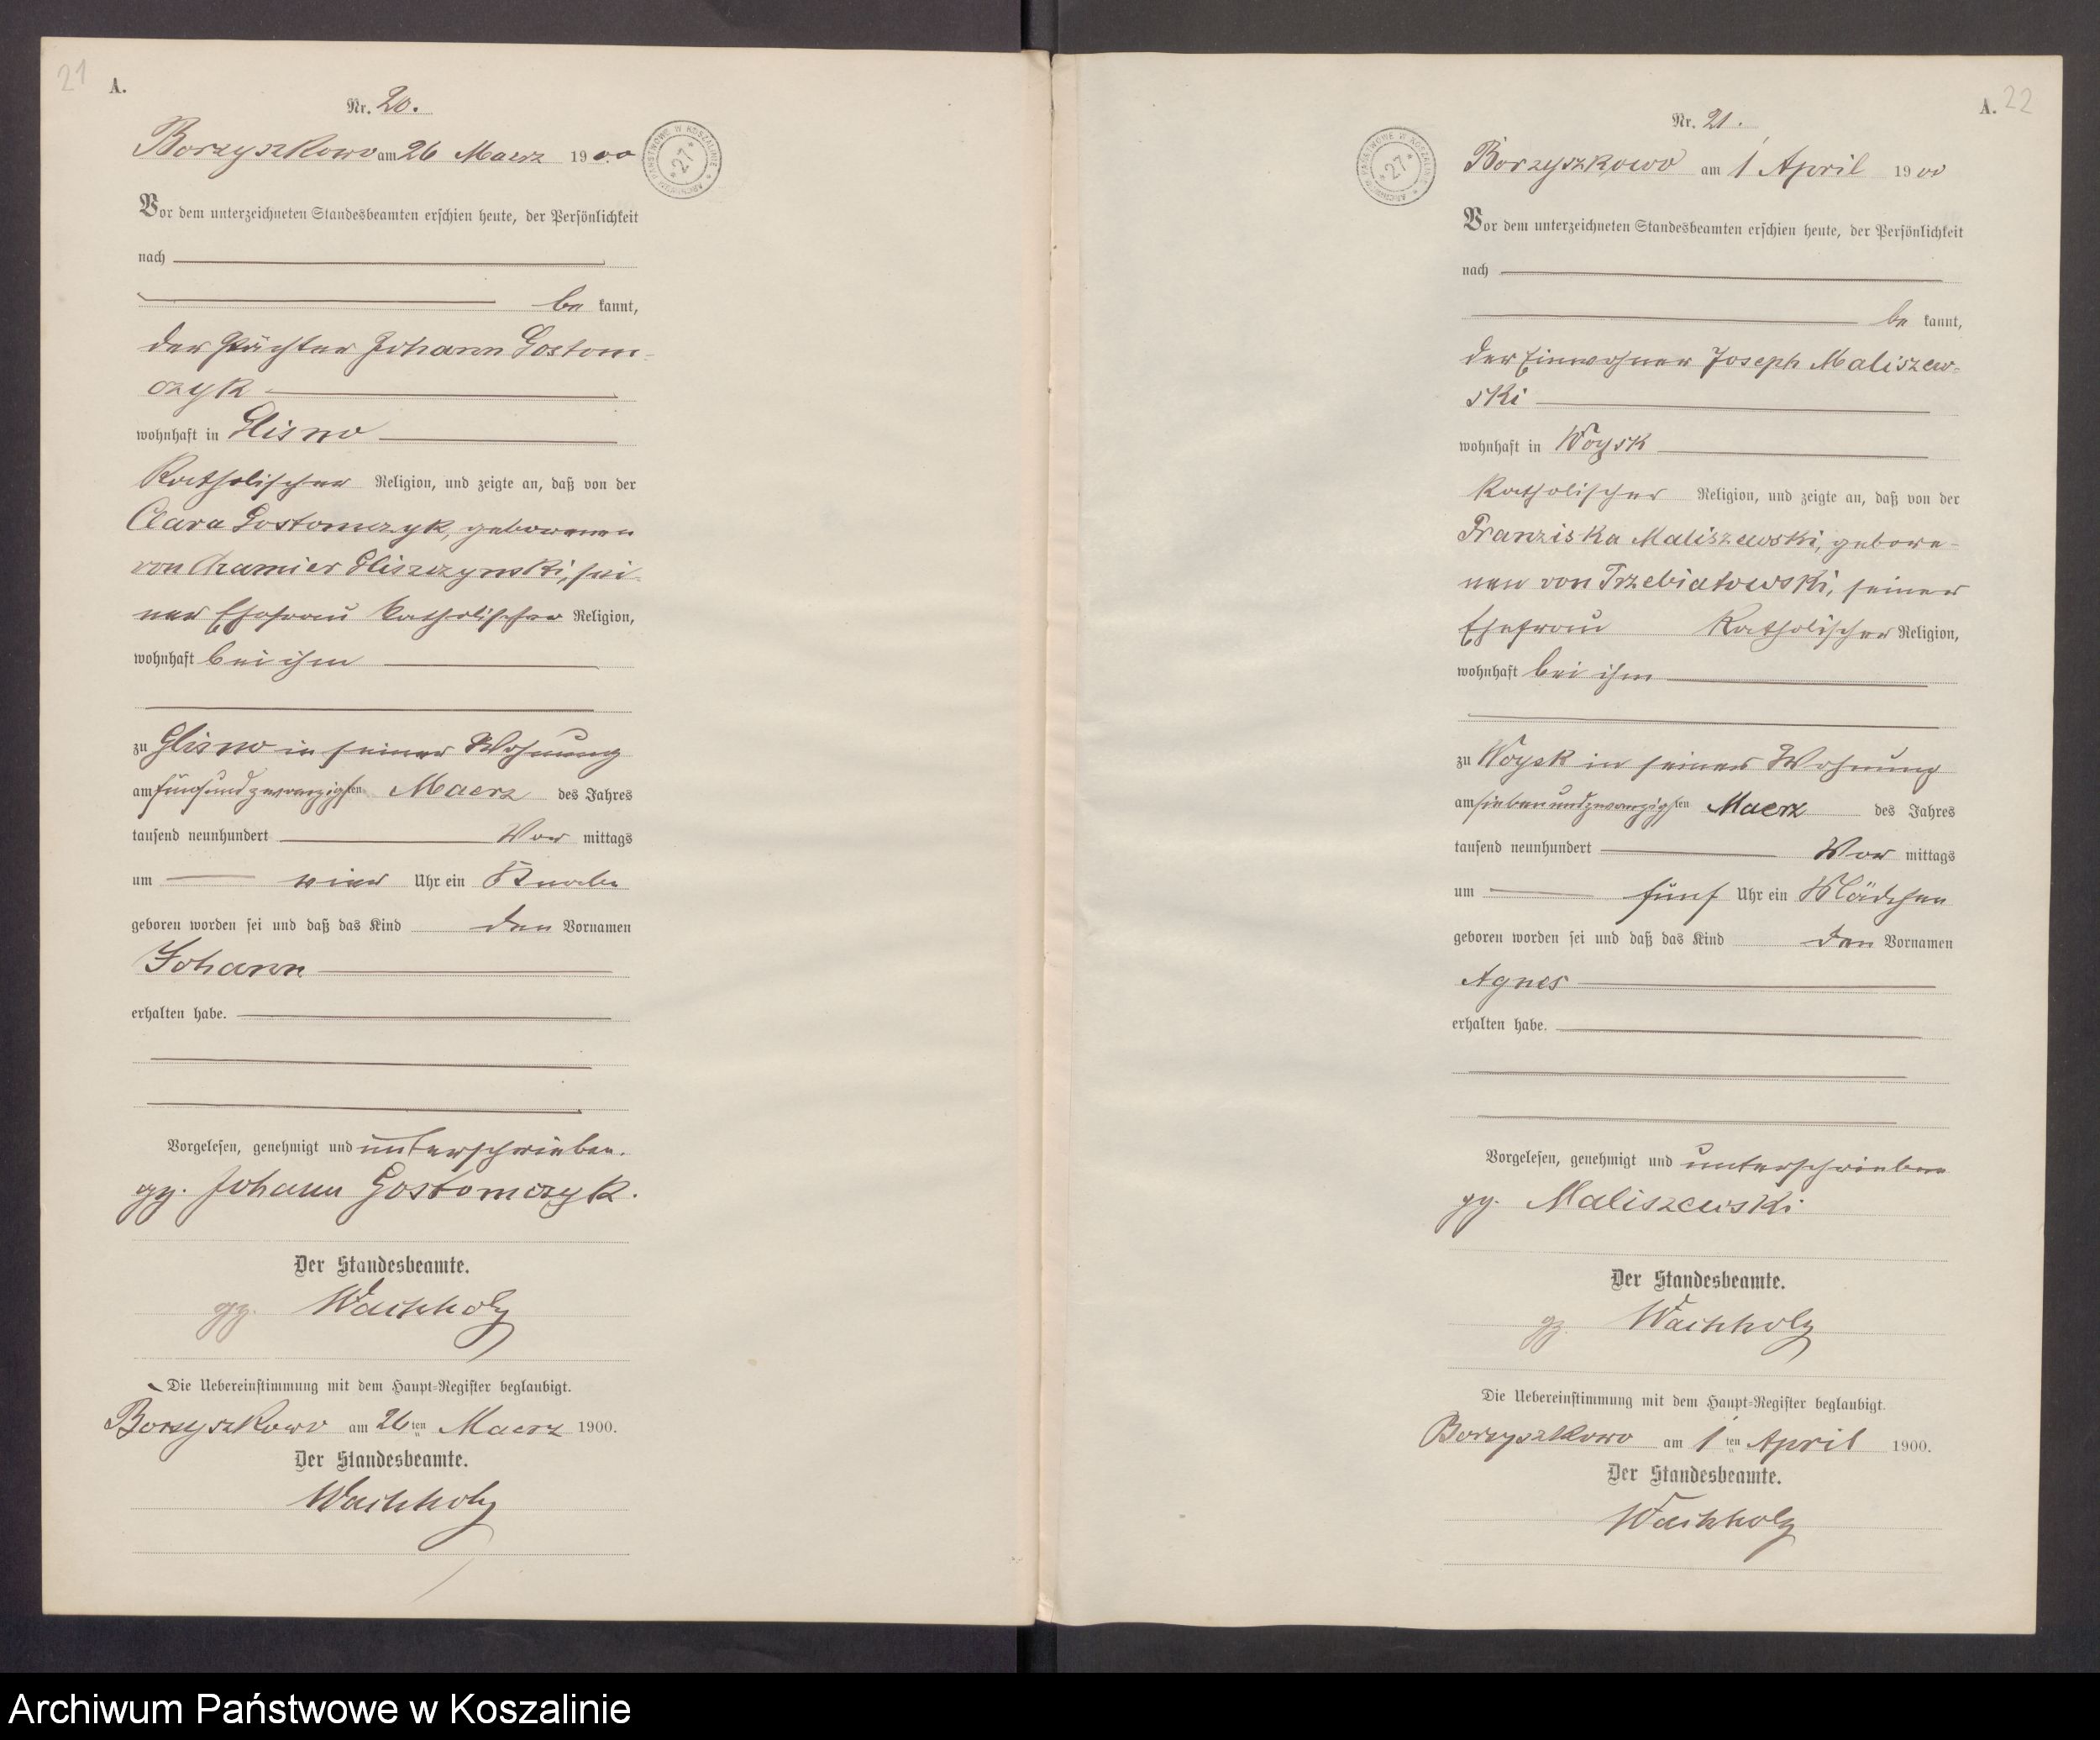 21
A.
Nr. 20.
Borzyszkowo am 26 Maerz 1900
ARCHIWUM PAŃSTWOWE W KOSZALINIE * 27 *
Vor dem unterzeichneten Standesbeamten erschien heute, der Persönlichkeit
nach
be kannt,
der Pächter Johann Gostom-
czyk
wohnhaft in Glisno
katholischer Religion, und zeigte an, daß von der
Clara Gostomczyk, geborenen
von Chamier Gliszczynski, sei-
ner Ehefrau katholischer Religion,
wohnhaft bei ihm
zu Glisno in seiner Wohnung
am fünfundzwanzigsten Maerz des Jahres
tausend neunhundert Vor mittags
um vier Uhr ein Knabe
geboren worden sei und daß das Kind den Vornamen
Johann
erhalten habe.
Vorgelesen, genehmigt und unterschrieben.
gez. Johann Gostomczyk.
Der Standesbeamte.
gez. Wachholz
Die Uebereinstimmung mit dem Haupt-Register beglaubigt.
Borzyszkowo am 26ten Maerz 1900.
Der Standesbeamte.
Wachholz
A. 22
Nr. 21.
Borzyszkowo am 1 April 1900
ARCHIWUM PAŃSTWOWE W KOSZALINIE * 27 *
Vor dem unterzeichneten Standesbeamten erschien heute, der Persönlichkeit
nach
be kannt,
der Einwohner Joseph Maliszew-
ski
wohnhaft in Woysk
katholischer Religion, und zeigte an, daß von der
Franziska Maliszewski, gebore-
nen von Trzebiatowski, seiner
Ehefrau katholischer Religion,
wohnhaft bei ihm
zu Woysk in seiner Wohnung
am siebenundzwanzigsten Maerz des Jahres
tausend neunhundert Vor mittags
um fünf Uhr ein Mädchen
geboren worden sei und daß das Kind den Vornamen
Agnes
erhalten habe.
Vorgelesen, genehmigt und unterschrieben
gez. Maliszewski
Der Standesbeamte.
gez. Wachholz
Die Uebereinstimmung mit dem Haupt-Register beglaubigt.
Borzyszkowo am 1ten April 1900.
Der Standesbeamte.
Wachholz
Archiwum Państwowe w Koszalinie